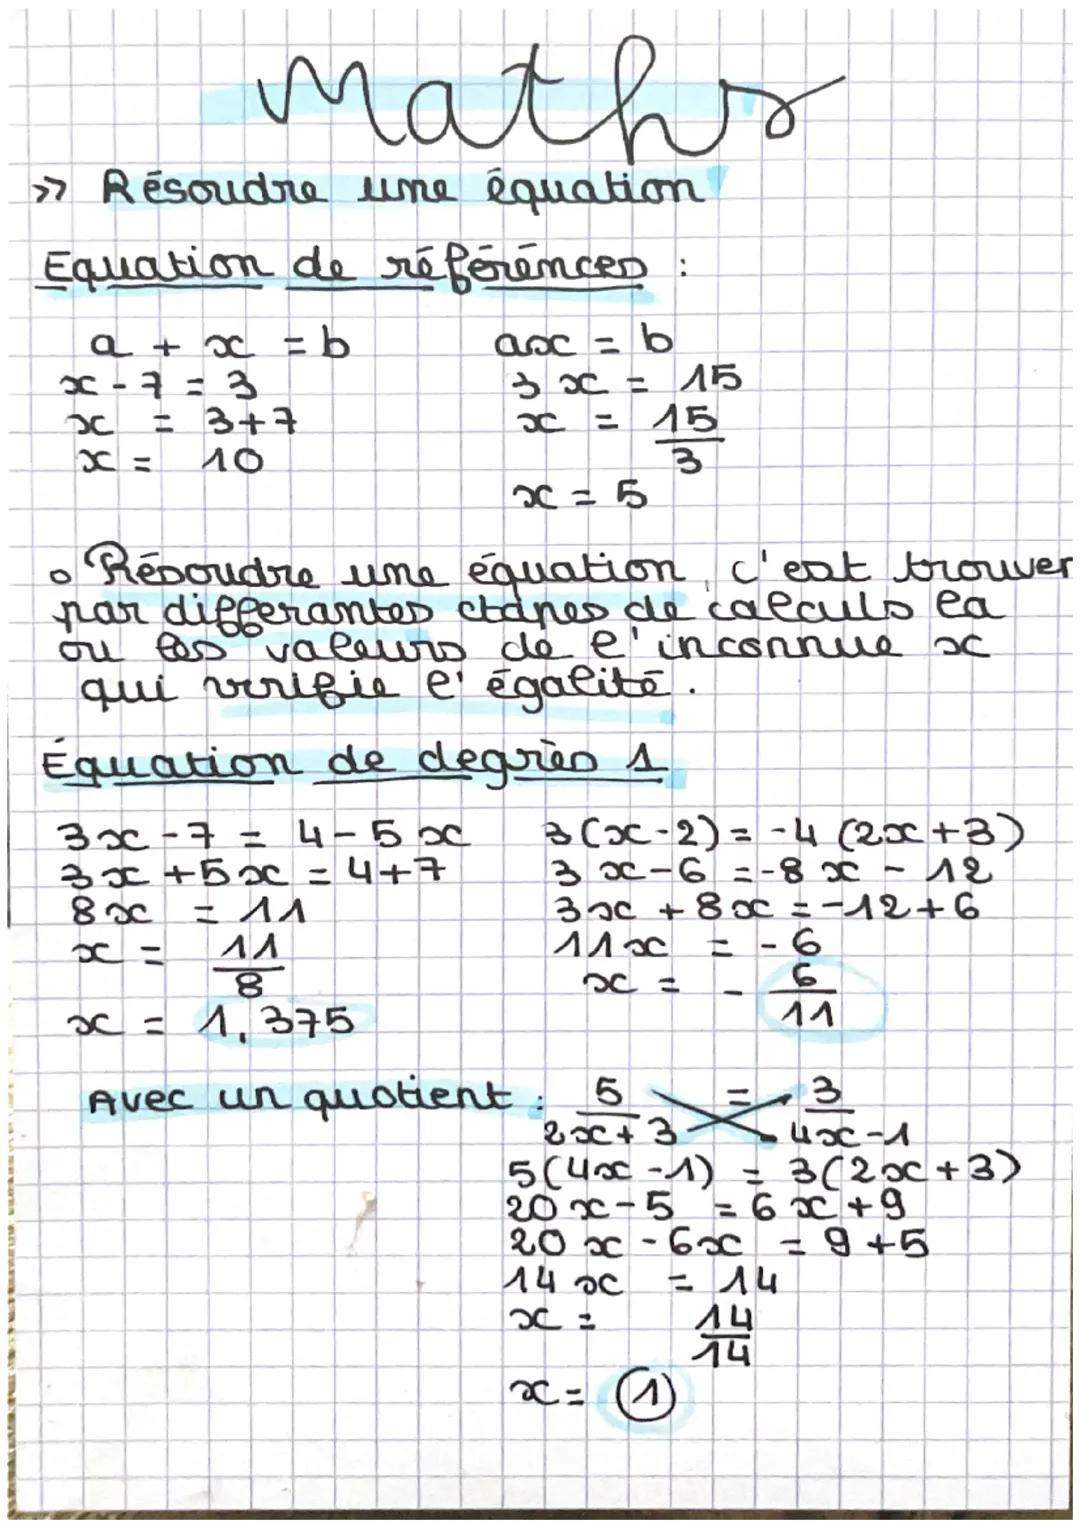 Maths
>> Résoudre une équation
Equation de référénces :
a + x = b
x - 7 = 3
x = 3+7
x = 10
ax = b
3x = 15
x = 15/3
x = 5
o Résoudre une équation, c'est trouver
par differantes étapes de calculs la
ou les valeurs de l'inconnue x
qui vérifie l'égalité.
Équation de degrès 1
3x - 7 = 4 - 5x
3x + 5x = 4+7
8x = 11
x = 11/8
x = 1,375
3(x-2) = -4(2x+3)
3x-6 = -8x - 12
3x + 8x = -12+6
11x = -6
x = - 6/11
Avec un quotient : 5/2x+3 = 3/4x-1
5(4x-1) = 3(2x+3)
20x-5 = 6x+9
20x-6x = 9+5
14x = 14
x = 14/14
x = 1